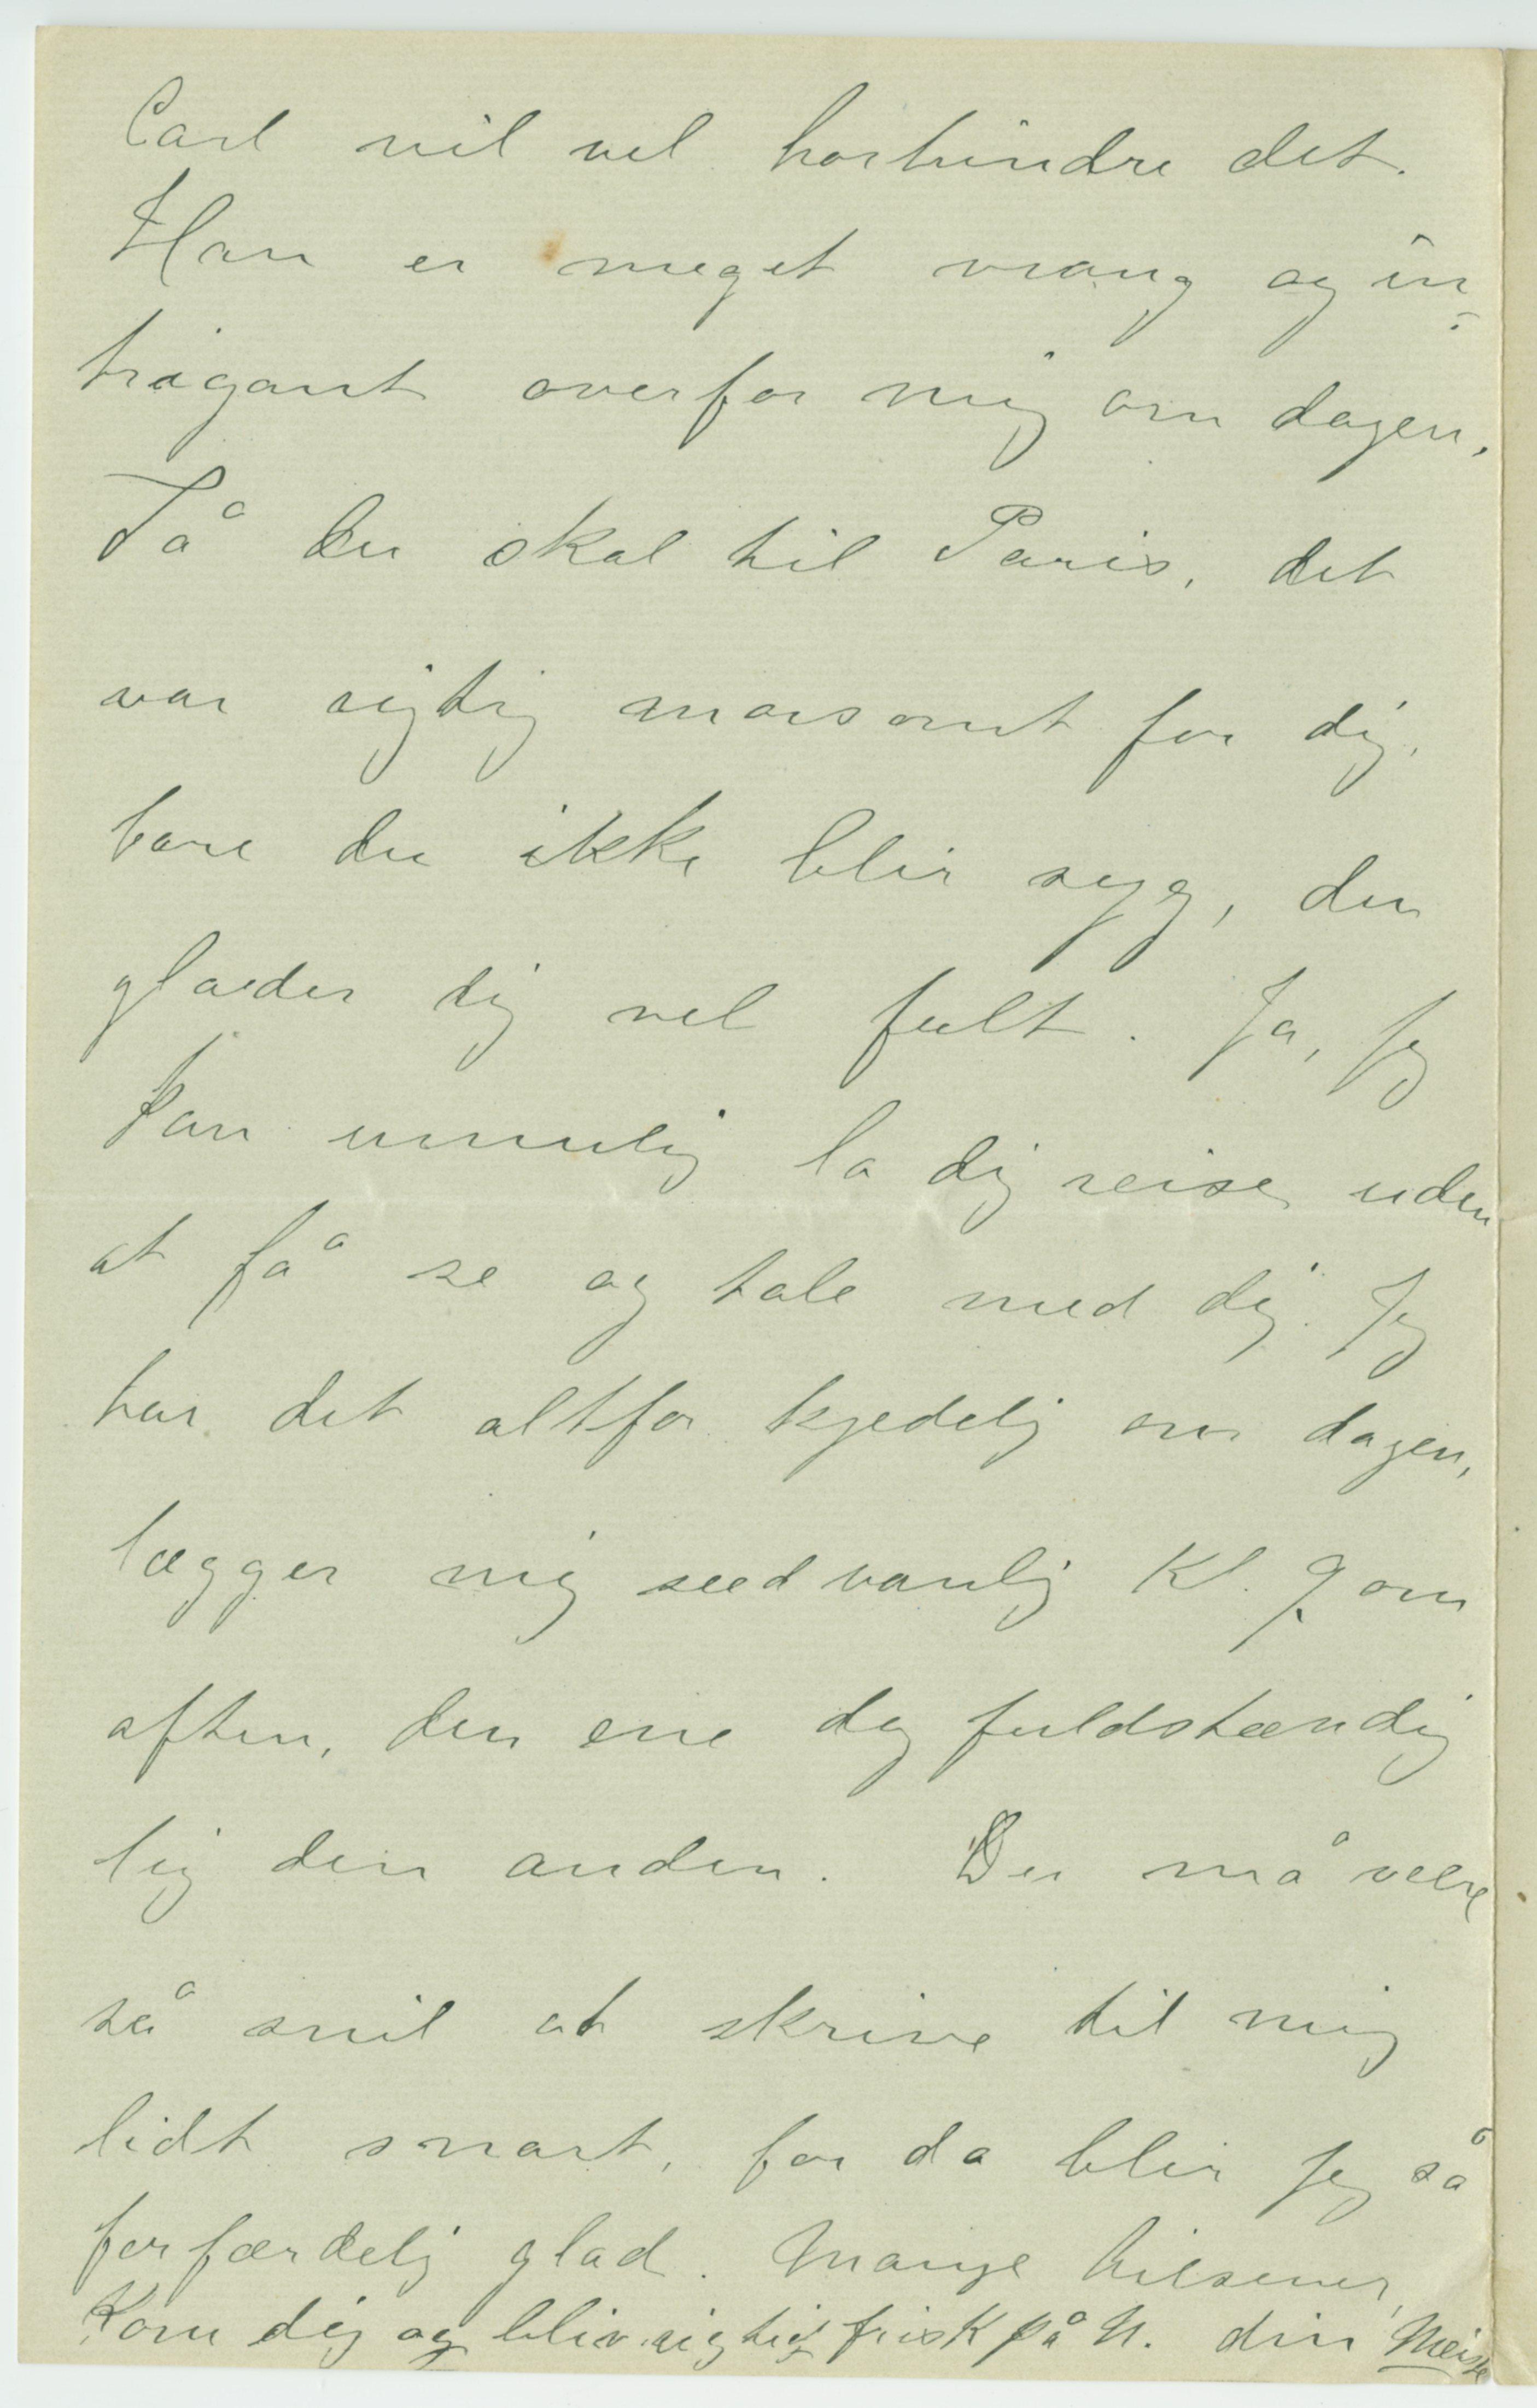 Carl vil vel forhindre det.
Han er meget vrang og in-
trigant overfor mig om dagen.
Så du skal til Paris, det
var rigtig morsomt for dig,
bare du ikke blir syg, du
glæder dig vel fult. Ja, jeg
kan umulig la dig reise uden
at få se og tale med dig. Jeg
har det altfor kjedelig om dagen,
lægger mig sædvanlig Kl. 9 om
aften, den ene dag fuldstændig
lig den anden. Du må være
så snil at skrive til mig
lidt snart, for da blir jeg så
forfærdelig glad. Mange hilsener,
Kom dig og bliv rigtig frisk på N. din